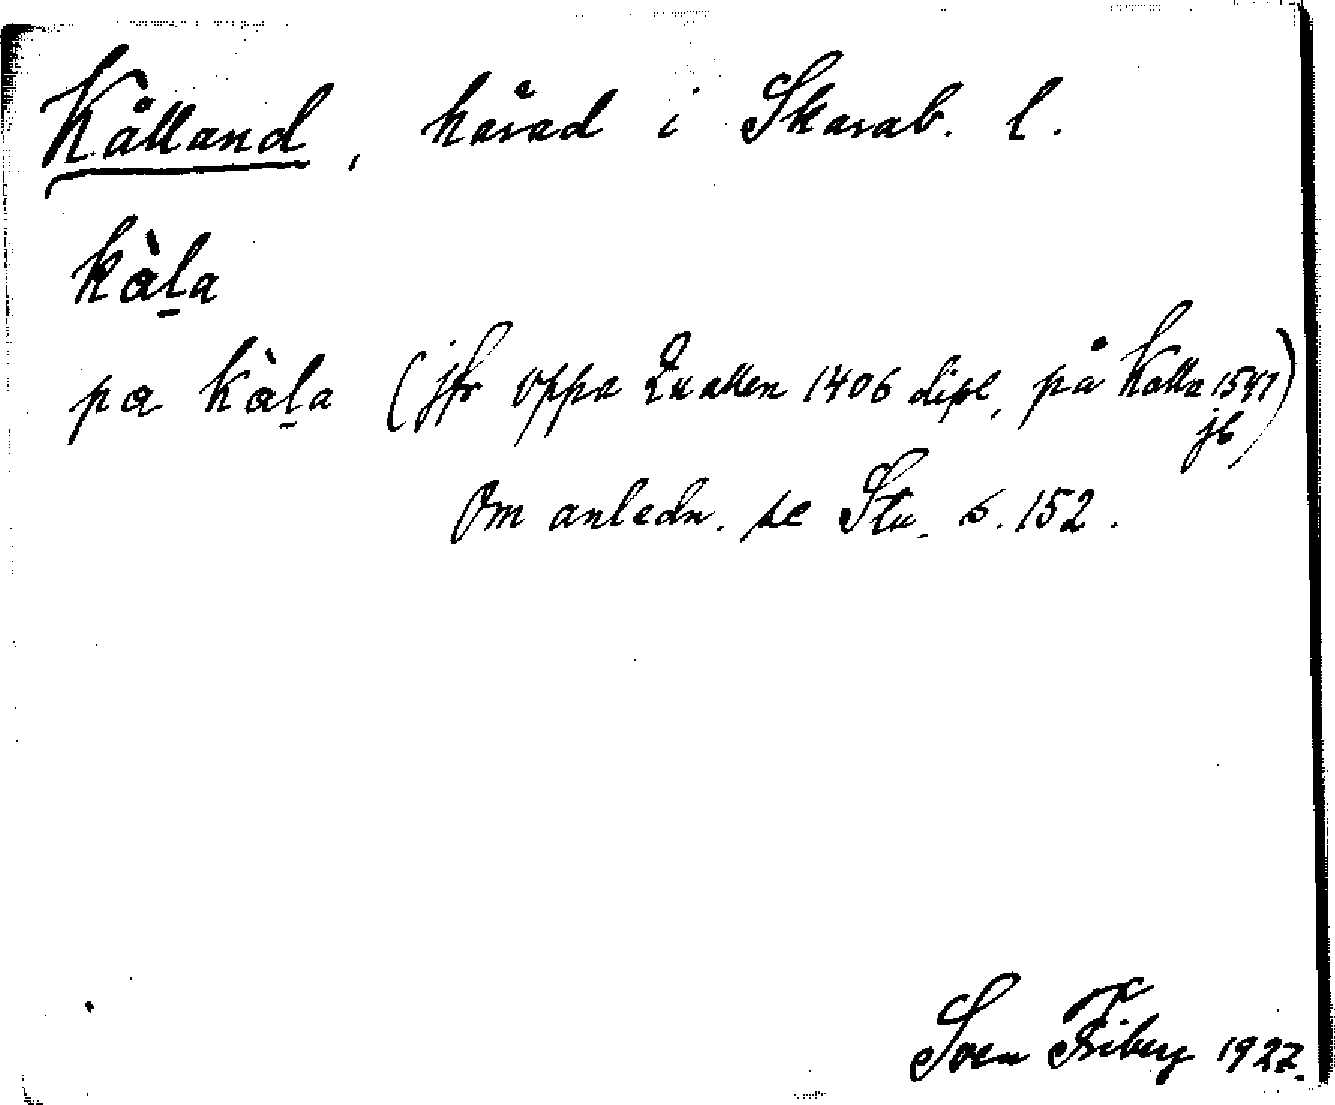 Kålland, härad i Skarab. l.
kàl̠a
pa kàl̠a (jfr oppa Qvallen 1406 dipl., på Kalla 1541 jb)
Om anledn. se Stu. s. 152.
Sven Friberg 1927.